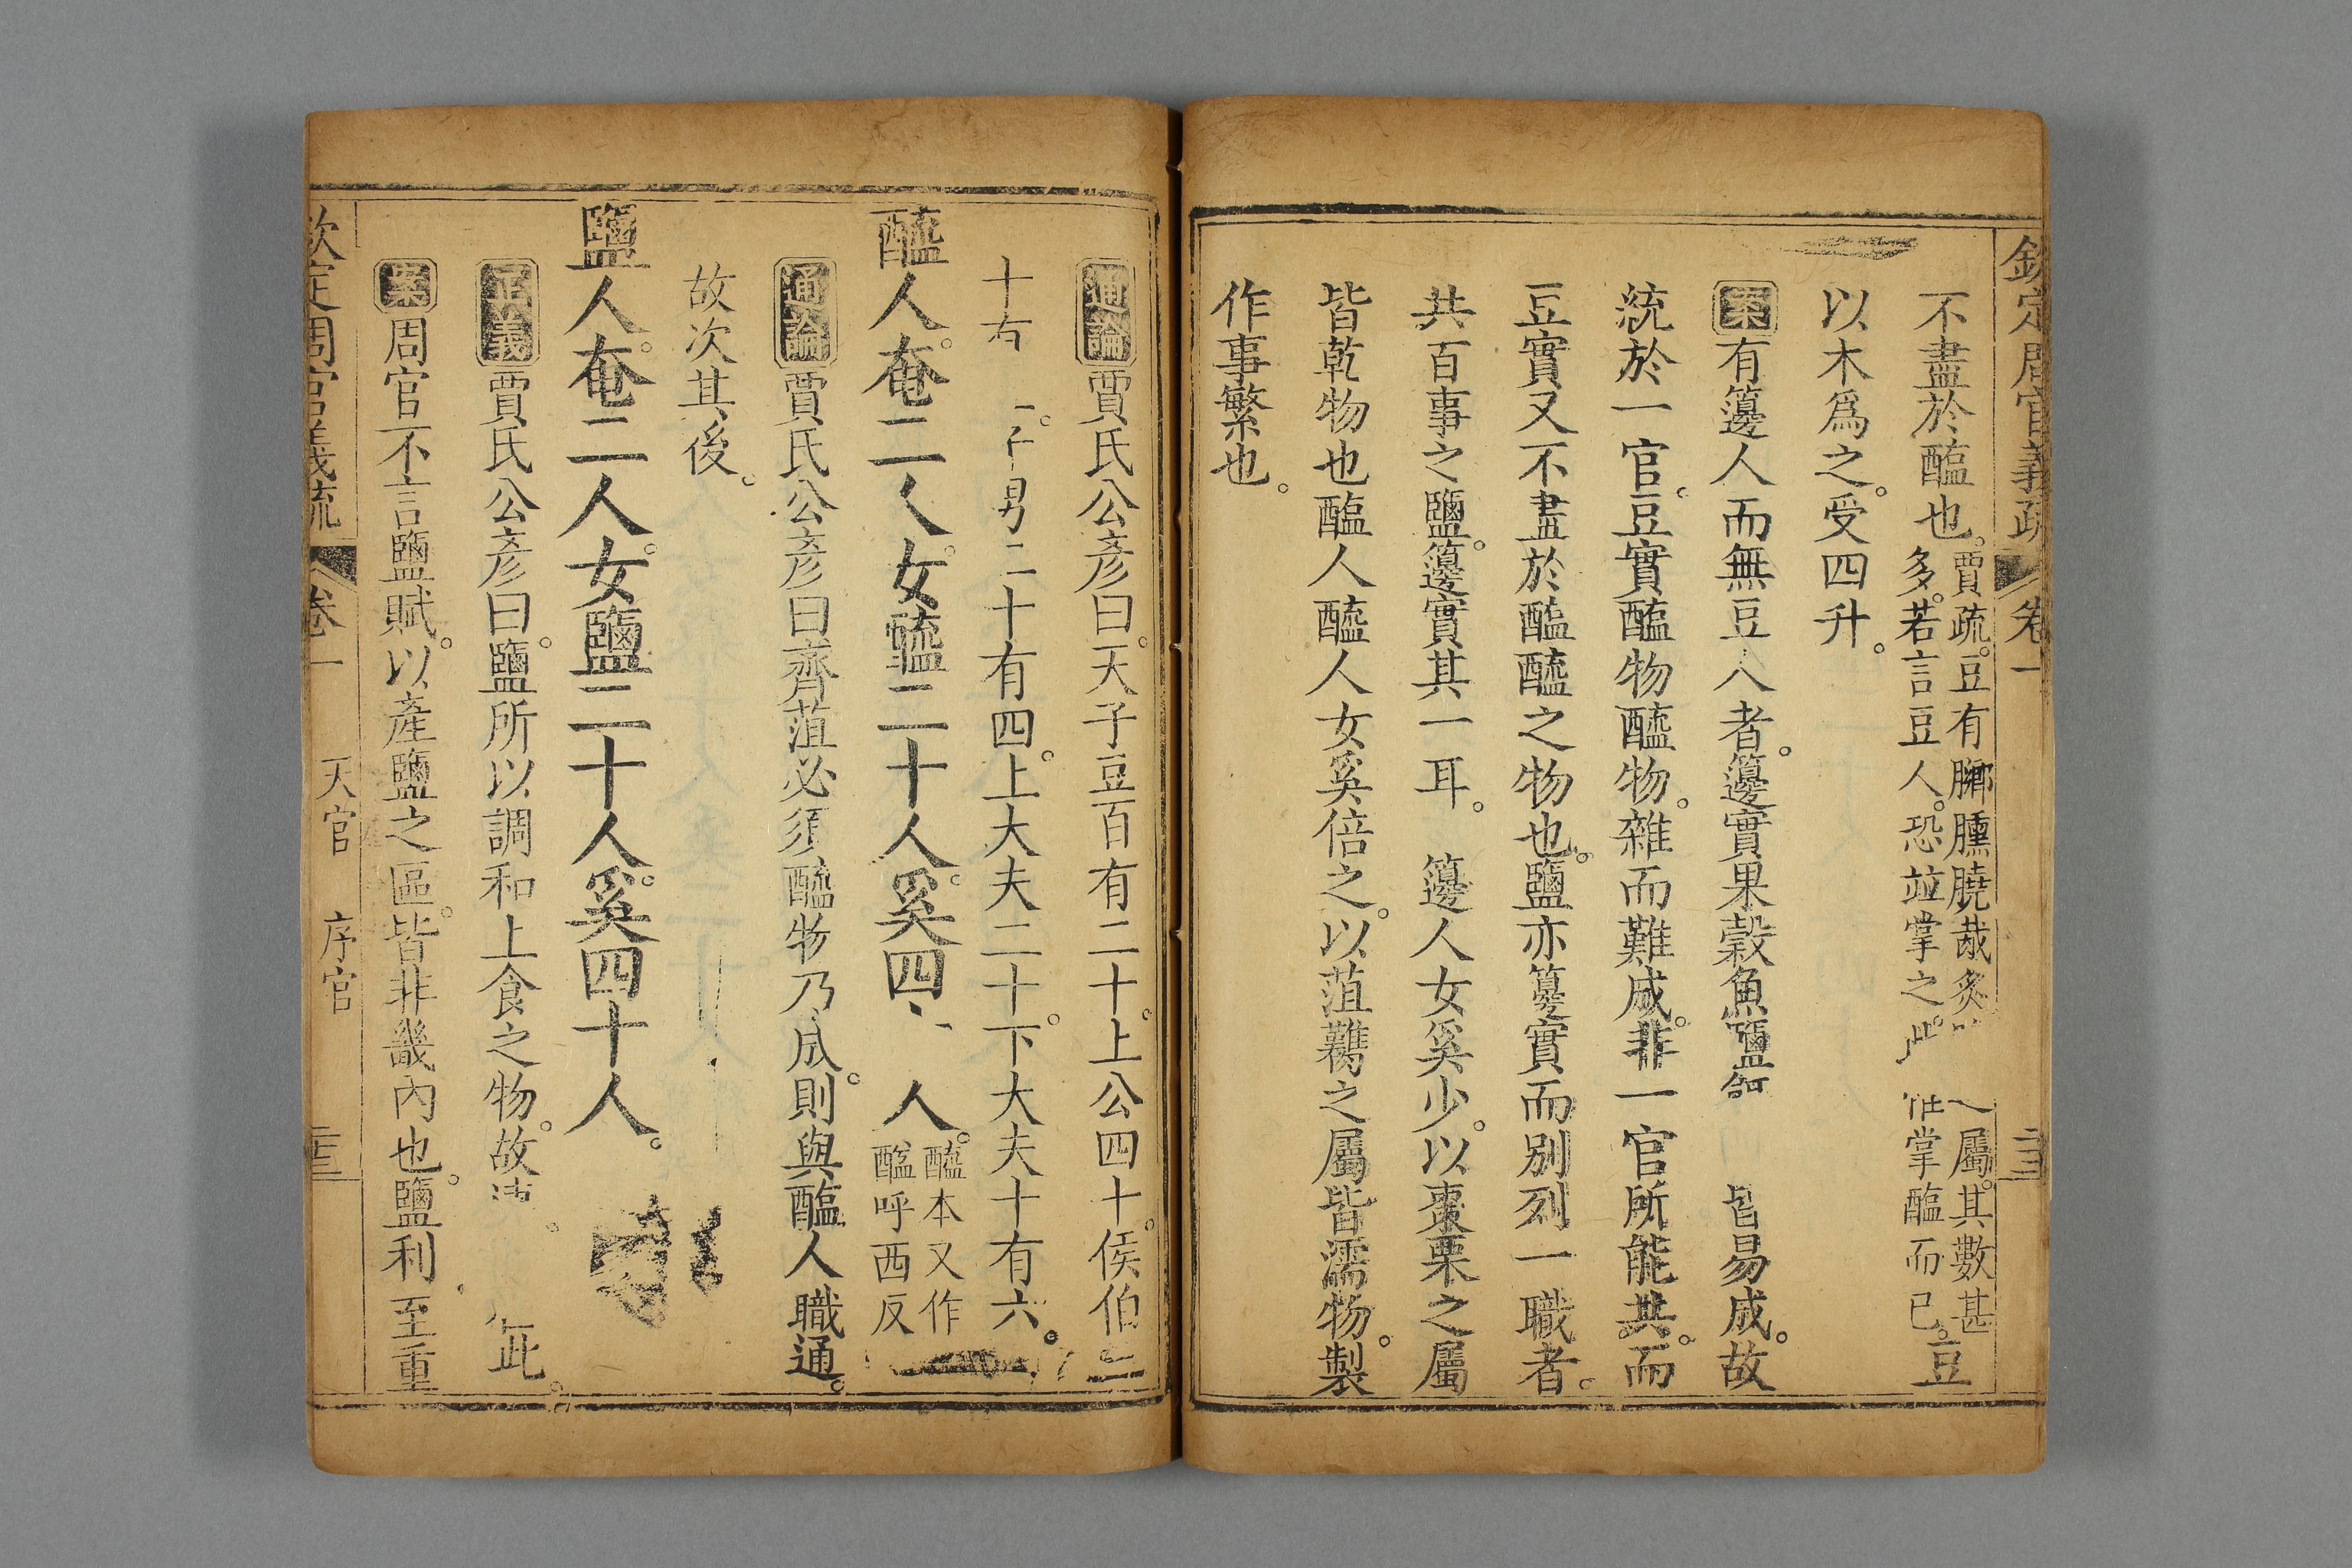 欽定周官義疏 卷一
不盡於醢也。賈疏。豆有膷臐膮胾炙 屬。其數甚
多。若言豆人。恐竝掌之。 掌醢而已。豆
以木爲之。受四升。
案有籩人而無豆人者。籩實果穀魚鹽 皆易成。故
統於一官。豆實醢物醯物。雜而難成。非一官所能共。而
豆實又不盡於醢醯之物也。鹽亦籩實而別列一職者。
共百事之鹽。籩實其一耳。 籩人女奚少。以棗栗之屬
皆乾物也醢人醯人女奚倍之。以菹臡之屬皆濡物。製
作事繁也。
通論賈氏公彥曰。天子豆百有二十。上公四十。侯伯三
十有 子男二十有四。上大夫二十。下大夫十有六。
醯人奄二人。女醯二十人。奚四 人。醯本又作
醯呼西反
通論賈氏公彥曰齊菹必須醯物乃成。則與醢人職通。
故次其後。
鹽人奄二人。女鹽二十人。奚四十人。
正義賈氏公彥曰。鹽所以調和上食之物。故 此。
案周官不言鹽賦。以產鹽之區。皆非畿內也。鹽利至重
欽定周官義疏 卷一 天官 序官